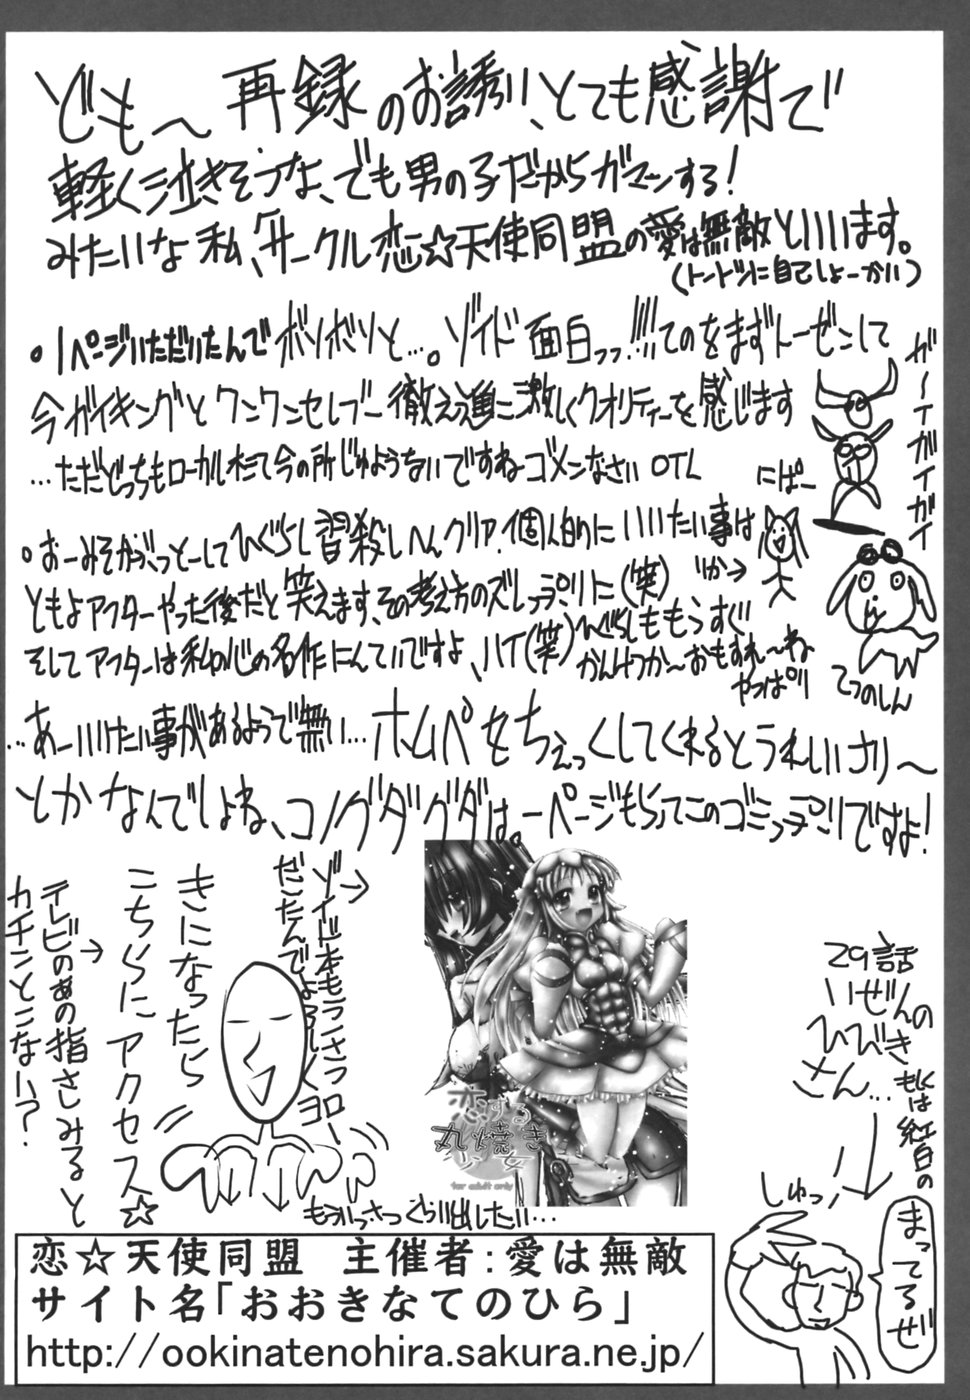 どもへ 再録のお誘い、とても感謝で
軽く泣きそうな、でも男の子だからガマンする!
みたいな私、サークル恋☆天使同盟の愛は無敵といいます。
(トートツに自己しょーかい)
・1ページいただいたんでボソボソと…。ゾイド面白っっ!!!!てのをまずトーゼンして
今ガイキングとワンワンセレプー徹え道に激しくクオリティーを感じます
…ただどっちもローカルネタで今の所じゅようないですねゴメンなさい OTL
ガーイガイガイ
にぱー
・おーみそかぶっとーしてひぐらし皆殺しへんクリア、個人的にいいたい事は
ともよアフターやった後だと笑えます、その考え方のズレっプリに(笑)
いか→
そしてアフターは私の心の名作にんていですよ、ハイ(笑)
ひぐらしももうすぐ
かんけつか〜おもすれ〜ね
やっぱり
てつのしん
…あーいいたい事があるようで無い…ホムペをちぇっくしてくれるとうれしいさり〜
とかなんでしょね、コノグダグダは。一ページもらってこのゴミっプリですよ!
ゾイド本もラさラら
だたんでよろしくヨロー
きになったら
こちらにアクセス☆
テレビのあの指さしみると
カチンとこない?
恋する
丸焼き
乙女
for adult only
もういっさつぐらい出したい…
29話
いぜんの
ひびき
さん…
もしくは紅白の
しゅっ
まってるぜ
恋☆天使同盟 主催者:愛は無敵
サイト名「おおきなてのひら」
http://ookinatenohira.sakura.ne.jp/